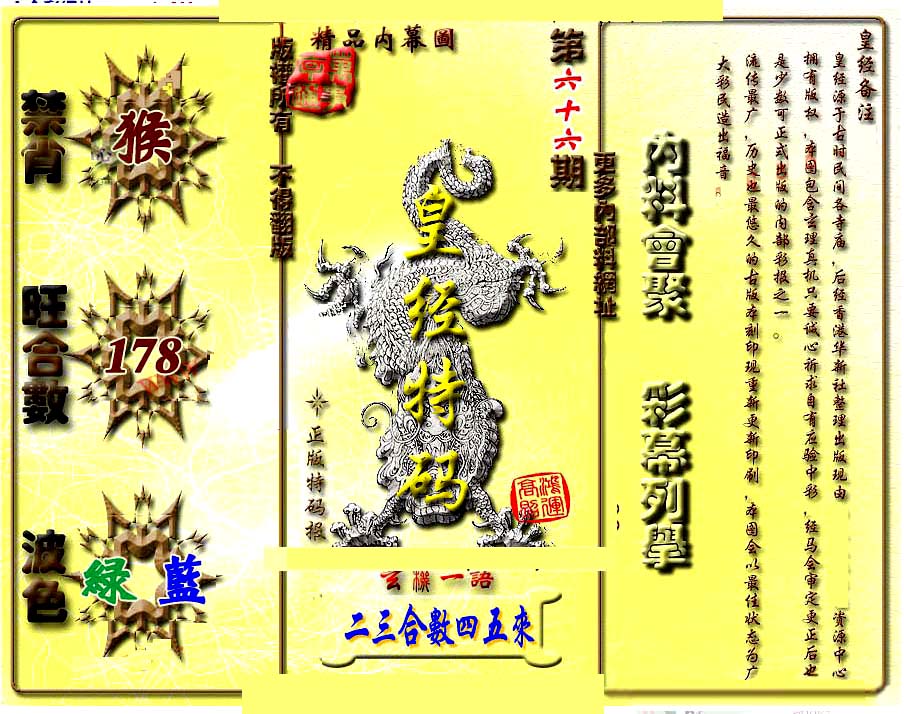 精品內幕圖
第六十六期
版權所有 不得翻版
更多內部料網址
禁肖
猴
旺合數
178
波色
綠 藍
皇经特码
正版特码报
鴻運高照
玄機一語
二三合數四五來
內料會聚 彩幕列舉
皇经备注
皇经源于古时民间各寺庙,后经香港华新社整理出版现由 资源中心
拥有版权,本图包含玄理真机只要诚心祈求自有应验中彩,经马会审定更正后也
是少数可正式出版的内部彩报之一。
流传最广,历史也最悠久的古版本刻印现重新更新印刷,本图会以最佳状态为广
大彩民造出福音